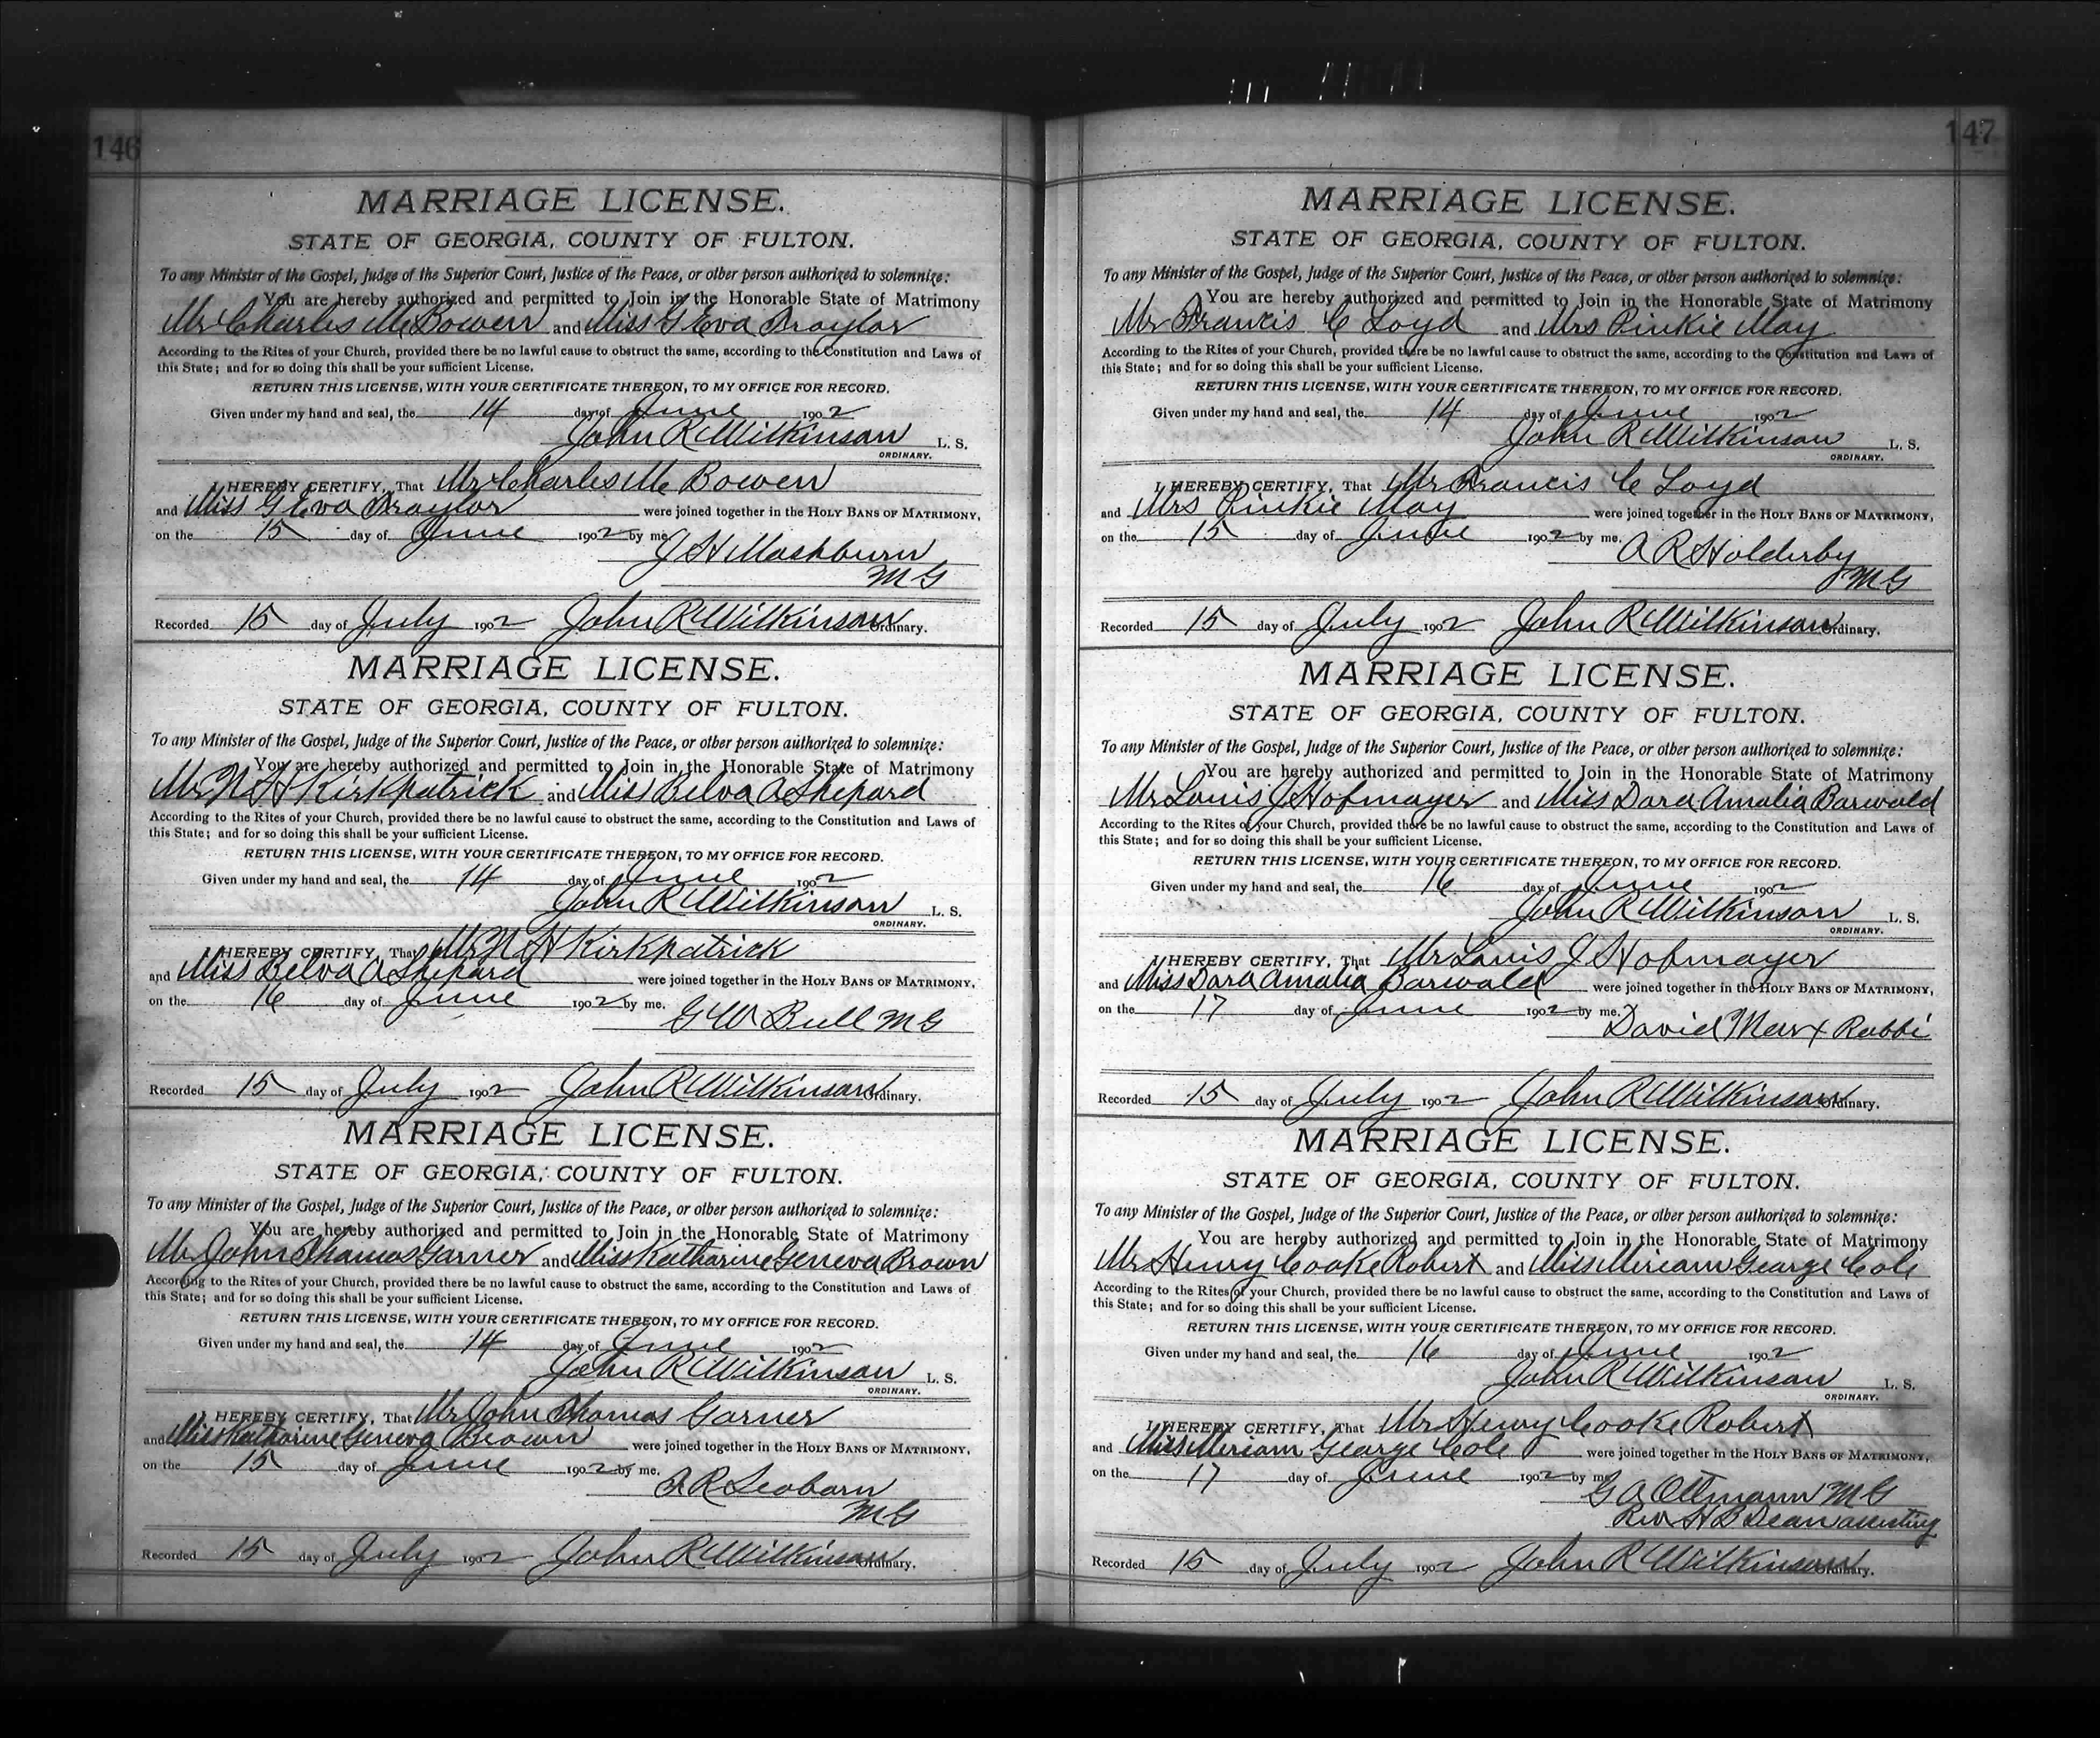 146
MARRIAGE LICENSE.
STATE OF GEORGIA, COUNTY OF FULTON.
To any Minister of the Gospel, Judge of the Superior Court, Justice of the Peace, or other person authorized to solemnize:
You are hereby authorized and permitted to Join in the Honorable State of Matrimony
Mr Charles M Bowen and Miss G Eva Traylor
According to the Rites of your Church, provided there be no lawful cause to obstruct the same, according to the Constitution and Laws of
this State; and for so doing this shall be your sufficient License.
RETURN THIS LICENSE, WITH YOUR CERTIFICATE THEREON, TO MY OFFICE FOR RECORD.
Given under my hand and seal, the 14 day of June 1902
John R Wilkinson L. S.
ORDINARY.
I HEREBY CERTIFY, That Mr Charles M Bowen
and Miss G Eva Traylor were joined together in the HOLY BANS OF MATRIMONY,
on the 15 day of June 1902 by me
J H Mashburn
M G
Recorded 15 day of July 1902 John R Wilkinson Ordinary.
MARRIAGE LICENSE.
STATE OF GEORGIA, COUNTY OF FULTON.
To any Minister of the Gospel, Judge of the Superior Court, Justice of the Peace, or other person authorized to solemnize:
You are hereby authorized and permitted to Join in the Honorable State of Matrimony
Mr N H Kirkpatrick and Miss Belva A Shepard
According to the Rites of your Church, provided there be no lawful cause to obstruct the same, according to the Constitution and Laws of
this State; and for so doing this shall be your sufficient License.
RETURN THIS LICENSE, WITH YOUR CERTIFICATE THEREON, TO MY OFFICE FOR RECORD.
Given under my hand and seal, the 14 day of June 1902
John R Wilkinson L. S.
ORDINARY.
I HEREBY CERTIFY, That Mr N H Kirkpatrick
and Miss Belva A Shepard were joined together in the HOLY BANS OF MATRIMONY,
on the 16 day of June 1902 by me.
G W Bull M G
Recorded 15 day of July 1902 John R Wilkinson Ordinary.
MARRIAGE LICENSE.
STATE OF GEORGIA, COUNTY OF FULTON.
To any Minister of the Gospel, Judge of the Superior Court, Justice of the Peace, or other person authorized to solemnize:
You are hereby authorized and permitted to Join in the Honorable State of Matrimony
Mr John Thomas Garner and Miss Katharine Geneva Brown
According to the Rites of your Church, provided there be no lawful cause to obstruct the same, according to the Constitution and Laws of
this State; and for so doing this shall be your sufficient License.
RETURN THIS LICENSE, WITH YOUR CERTIFICATE THEREON, TO MY OFFICE FOR RECORD.
Given under my hand and seal, the 14 day of June 1902
John R Wilkinson L. S.
ORDINARY.
I HEREBY CERTIFY, That Mr John Thomas Garner
and Miss Katharine Geneva Brown were joined together in the HOLY BANS OF MATRIMONY,
on the 15 day of June 1902 by me.
R Seaborn
M G
Recorded 15 day of July 1902 John R Wilkinson Ordinary.
147
MARRIAGE LICENSE.
STATE OF GEORGIA, COUNTY OF FULTON.
To any Minister of the Gospel, Judge of the Superior Court, Justice of the Peace, or other person authorized to solemnize:
You are hereby authorized and permitted to Join in the Honorable State of Matrimony
Mr Francis C Loyd and Mrs Pinkie May
According to the Rites of your Church, provided there be no lawful cause to obstruct the same, according to the Constitution and Laws of
this State; and for so doing this shall be your sufficient License.
RETURN THIS LICENSE, WITH YOUR CERTIFICATE THEREON, TO MY OFFICE FOR RECORD.
Given under my hand and seal, the 14 day of June 1902
John R Wilkinson L. S.
ORDINARY.
I HEREBY CERTIFY, That Mr Francis C Loyd
and Mrs Pinkie May were joined together in the HOLY BANS OF MATRIMONY,
on the 15 day of June 1902 by me.
A R Holderby
M G
Recorded 15 day of July 1902 John R Wilkinson Ordinary.
MARRIAGE LICENSE.
STATE OF GEORGIA, COUNTY OF FULTON.
To any Minister of the Gospel, Judge of the Superior Court, Justice of the Peace, or other person authorized to solemnize:
You are hereby authorized and permitted to Join in the Honorable State of Matrimony
Mr Louis J Hofmayer and Miss Dora Amalia Barwald
According to the Rites of your Church, provided there be no lawful cause to obstruct the same, according to the Constitution and Laws of
this State; and for so doing this shall be your sufficient License.
RETURN THIS LICENSE, WITH YOUR CERTIFICATE THEREON, TO MY OFFICE FOR RECORD.
Given under my hand and seal, the 16 day of June 1902
John R Wilkinson L. S.
ORDINARY.
I HEREBY CERTIFY, That Mr Louis J Hofmayer
and Miss Dora Amalia Barwald were joined together in the HOLY BANS OF MATRIMONY,
on the 17 day of June 1902 by me.
David Marx Rabbi
Recorded 15 day of July 1902 John R Wilkinson Ordinary.
MARRIAGE LICENSE.
STATE OF GEORGIA, COUNTY OF FULTON.
To any Minister of the Gospel, Judge of the Superior Court, Justice of the Peace, or other person authorized to solemnize:
You are hereby authorized and permitted to Join in the Honorable State of Matrimony
Mr Henry Cooke Robert and Miss Miriam George Cole
According to the Rites of your Church, provided there be no lawful cause to obstruct the same, according to the Constitution and Laws of
this State; and for so doing this shall be your sufficient License.
RETURN THIS LICENSE, WITH YOUR CERTIFICATE THEREON, TO MY OFFICE FOR RECORD.
Given under my hand and seal, the 16 day of June 1902
John R Wilkinson L. S.
ORDINARY.
I HEREBY CERTIFY, That Mr Henry Cooke Robert
and Miss Miriam George Cole were joined together in the HOLY BANS OF MATRIMONY,
on the 17 day of June 1902 by me
G A Ottmann M G
Rev H B Dean assisting
Recorded 15 day of July 1902 John R Wilkinson Ordinary.